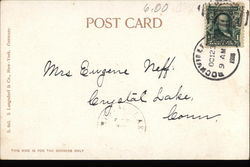 6.00
POST CARD
Mrs Eugene Neff.
Crystal Lake,
Conn.
THIS SIDE IS FOR THE ADDRESS ONLY
S. Langsdorf & Co., New-York.
OCT
9 AM